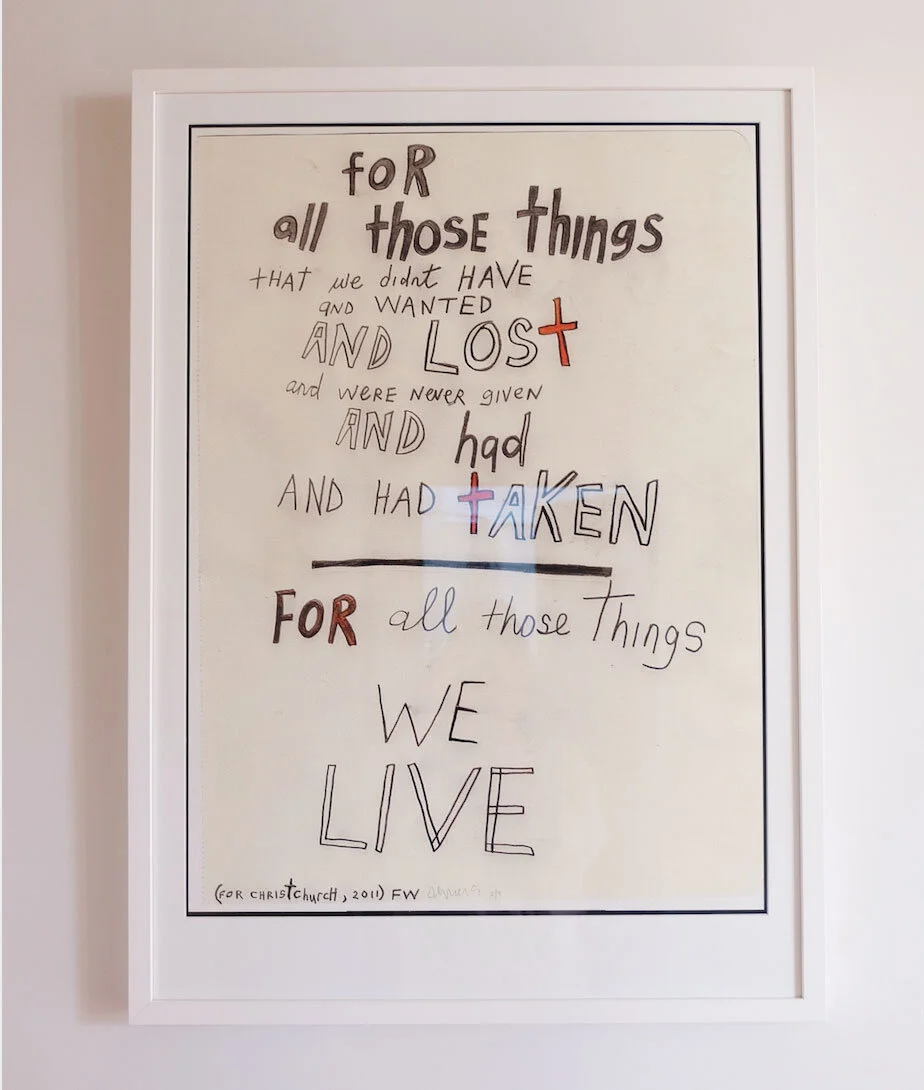 foR
all thosE things
tHAT we didnt HAVE
and WANTED
AND LOSt
and wERE NEVER given
AND had
AND HAD tAKEN
FOR all those Things
WE
LIVE
(FOR CHRIStchurcH, 2011) FW